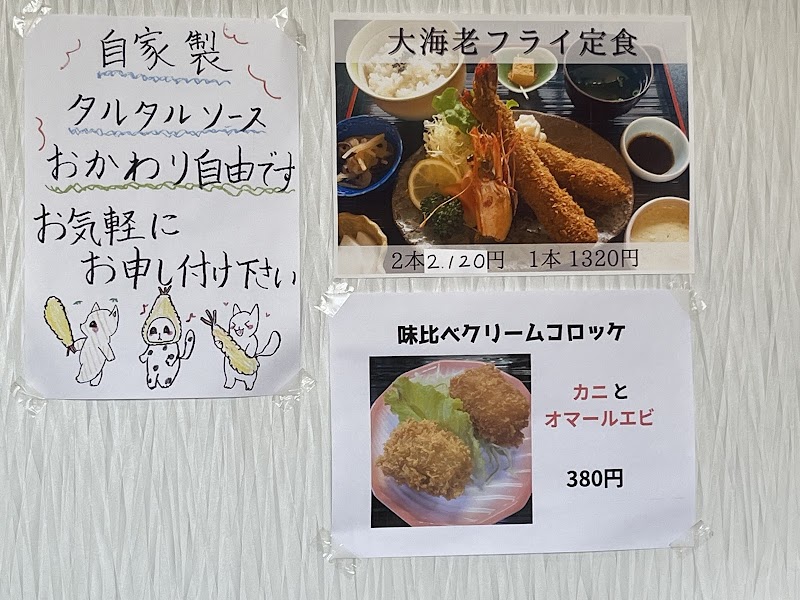 自家製
タルタルソース
おかわり自由です
お気軽に
お申し付け下さい
大海老フライ定食
2本2.120円 1本1320円
味比べクリームコロッケ
カニと
オマールエビ
380円